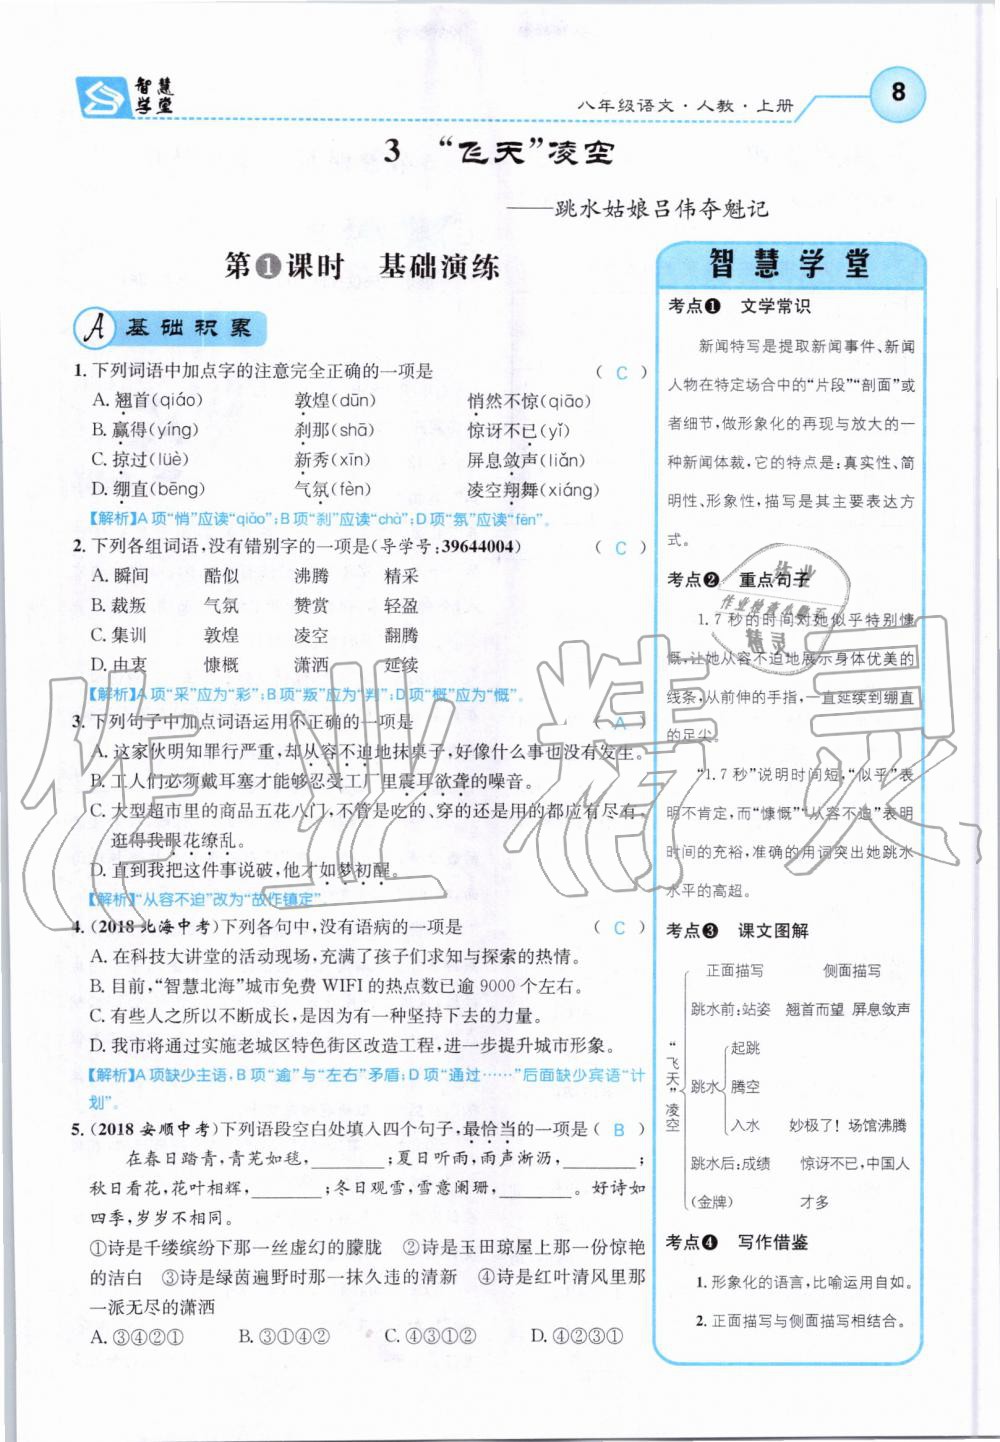 智慧学堂
八年级语文·人教·上册
8
3 “飞天”凌空
——跳水姑娘吕伟夺魁记
第❶课时 基础演练
A 基础积累
1. 下列词语中加点字的注意完全正确的一项是 ( C )
A. 翘首(qiáo) 敦煌(dūn) 悄然不惊(qiāo)
B. 赢得(yíng) 刹那(shā) 惊讶不已(yǐ)
C. 掠过(lüè) 新秀(xīn) 屏息敛声(liǎn)
D. 绷直(bēng) 气氛(fèn) 凌空翔舞(xiáng)
【解析】A项“悄”应读“qiǎo”；B项“刹”应读“chà”；D项“氛”应读“fēn”。
2. 下列各组词语,没有错别字的一项是(导学号:39644004) ( C )
A. 瞬间 酷似 沸腾 精采
B. 裁叛 气氛 赞赏 轻盈
C. 集训 敦煌 凌空 翻腾
D. 由衷 慷概 潇洒 延续
【解析】A项“采”应为“彩”；B项“叛”应为“判”；D项“概”应为“慨”。
3. 下列句子中加点词语运用不正确的一项是 ( A )
A. 这家伙明知罪行严重,却从容不迫地抹桌子,好像什么事也没有发生。
B. 工人们必须戴耳塞才能够忍受工厂里震耳欲聋的噪音。
C. 大型超市里的商品五花八门,不管是吃的、穿的还是用的都应有尽有,
逛得我眼花缭乱。
D. 直到我把这件事说破,他才如梦初醒。
【解析】“从容不迫”改为“故作镇定”。
4. (2018北海中考)下列各句中,没有语病的一项是 ( C )
A. 在科技大讲堂的活动现场,充满了孩子们求知与探索的热情。
B. 目前,“智慧北海”城市免费WIFI的热点数已逾9000个左右。
C. 有些人之所以不断成长,是因为有一种坚持下去的力量。
D. 我市将通过实施老城区特色街区改造工程,进一步提升城市形象。
【解析】A项缺少主语,B项“逾”与“左右”矛盾；D项“通过……”后面缺少宾语“计
划”。
5. (2018安顺中考)下列语段空白处填入四个句子,最恰当的一项是 ( B )
在春日踏青,青芜如毯,________；夏日听雨,雨声淅沥,________；
秋日看花,花叶相辉,________；冬日观雪,雪意阑珊,________。好诗如
四季,岁岁不相同。
①诗是千缕缤纷下那一丝虚幻的朦胧 ②诗是玉田琼屋上那一份惊艳
的洁白 ③诗是绿茵遍野时那一抹久违的清新 ④诗是红叶清风里那
一派无尽的潇洒
A. ③④②① B. ③①④② C. ④③①② D. ④②③①
智慧学堂
考点❶ 文学常识
新闻特写是提取新闻事件、新闻
人物在特定场合中的“片段”“剖面”或
者细节,做形象化的再现与放大的一
种新闻体裁,它的特点是:真实性、简
明性、形象性,描写是其主要表达方
式。
考点❷ 重点句子
1.7秒的时间对她似乎特别慷
慨,让她从容不迫地展示身体优美的
线条,从前伸的手指,一直延续到绷直
的足尖。
“1.7秒”说明时间短,“似乎”表
明不肯定,而“慷慨”“从容不迫”表明
时间的充裕,准确的用词突出她跳水
水平的高超。
考点❸ 课文图解
正面描写 侧面描写
跳水前:站姿 翘首而望 屏息敛声
“飞天”凌空
起跳
跳水 腾空
入水 妙极了！场馆沸腾
跳水后:成绩 惊讶不已,中国人
(金牌) 才多
考点❹ 写作借鉴
1. 形象化的语言,比喻运用自如。
2. 正面描写与侧面描写相结合。
作业精灵
作业
作业检查小能手
精灵